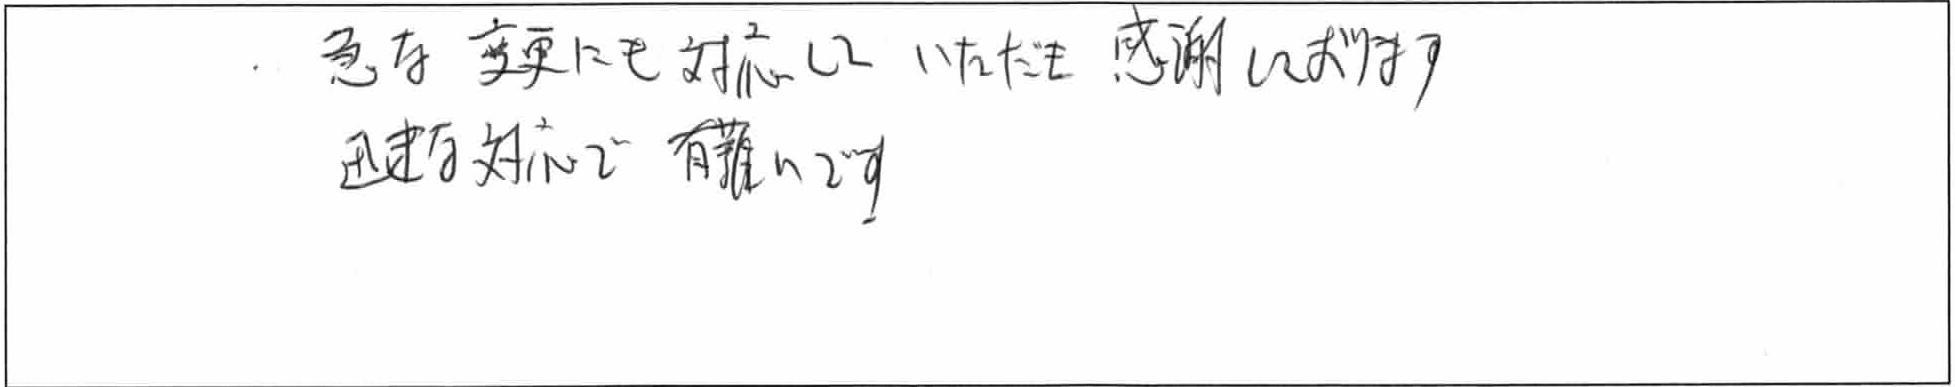 急な変更にも対応していただき感謝しております
迅速な対応で有難いです